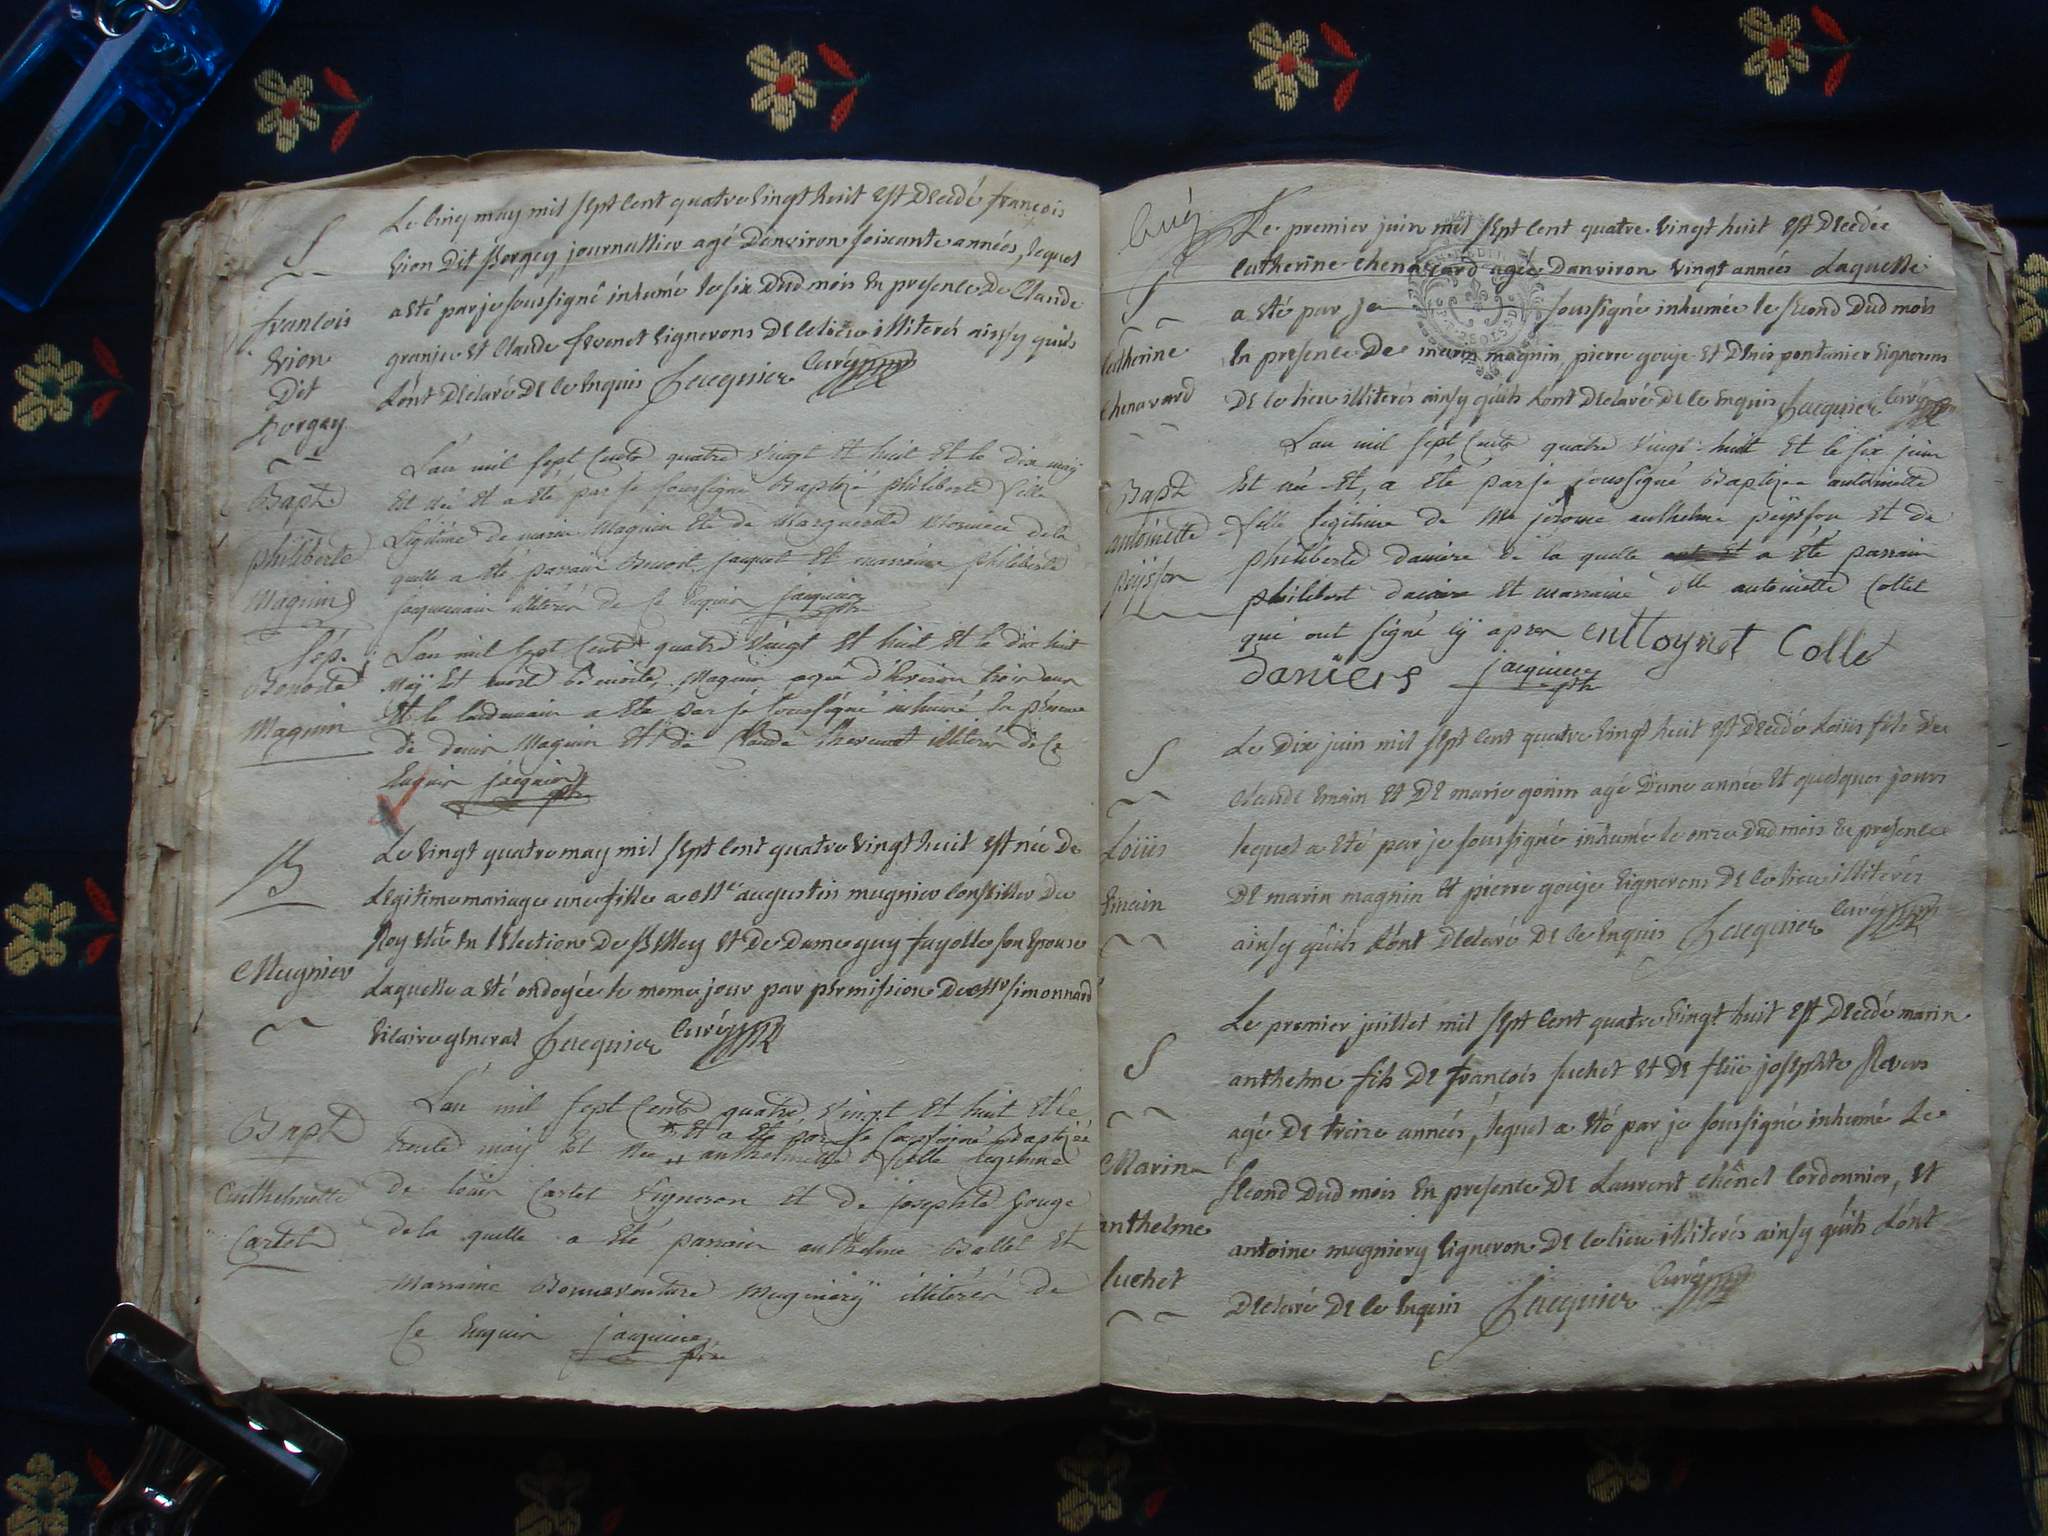 S
françois
Vion
Dit
Borgey
Le Cinq may mil sept Cent quatre vingt huit est Decedé françois
Vion Dit Borgey journallier agé Denviron soixante années, lequel
a eté par je soussigné inhumé le six Dud mois en presence De Claude
granjer et Claude Vignerons De ce lieu illiterés ainsy quils
L'ont Declaré De ce Enquis Jacquier Curé
Bapt
philiberte
Maguin
L'an mil sept Cents quatre vingt et huit et le dix may
est née et a eté par je soussigné Baptizé philiberte fille
Légitime de marin Maguin et de Marguerite de la
quelle a été parrain Benoit jacquet et marraine philiberte
jacquemain illitérés de ce Enquis jacquier
ptre
Sép.
Benoite
Maguin
L'an mil sept Cents quatre vingt et huit et le dix huit
May est morte Benoite Maguin agée d'Environ trois ans
et le lendemain a eté par je soussigné inhumé En présence
de denis Maguin et de Claude thevenet illitérés de Ce
Enquis jacquier
ptre
B
Mugnier
Le Vingt quatre may mil sept Cent quatre vingt huit est née De
Legitime mariage une fille a Mre augustin mugnier Conseiller Du
Roy elû En l'Election De Belley et De Dame guy fayolle son Epouse
Laquelle a eté ondoyée le meme jour par permission De Mr simonnard
Vicaire general Jacquier Curé
Bapt
Anthelmette
Cartet
L'an mil sept Cents quatre vingt et huit et le
trente may est Née anthelmette fille légitime
et a eté par je soussigné Baptizée
de louis Cartet Vigneron et de josephte gouge
de la quelle a eté parrain anthelme Ballet et
Marraine Bonnaventure Mugniery illitérés de
Ce Enquis jacquier
ptre
Curé
S
Catherine
Chenavard
Le premier juin mil sept Cent quatre vingt huit est Decedée
Catherine Chenavard agée Danviron vingt années Laquelle
a eté par je soussigné inhumée le second Dud mois
En presence De marin magnin, pierre gouje et Denis pontanier Vignerons
De ce lieu illiterés ainsy quils L'ont Declaré De ce Enquis Jacquier Curé
Bapt
antoinette
peysson
L'an mil sept Cents quatre vingt huit et le six juin
Est née et, a eté par je soussigné Baptizée antoinette
fille légitime de Me jerome anthelme peÿsson et de
philiberte daniere de la quelle a eté parrain
philibert daniere et marraine dlle antoinette Collet
qui ont signé cÿ apres enttoynet Collet
daniers jacquier
ptre
S
Loüis
Emain
Le Dix juin mil sept Cent quatre vingt huit est Decedé Loüis fils De
Claude Emain et De marie gonin agé D'une année et quelques jours
lequel a eté par je soussigné inhumé le onze Dud mois En presence
De marin magnin et pierre gouje Vignerons De ce lieu illiterés
ainsy quils L'ont Declaré De ce Enquis Jacquier Curé
S
Marin
anthelme
suchet
Le premier juillet mil sept Cent quatre vingt huit est Decedé marin
anthelme fils De françois suchet et De feüe josephte
agé De treize années, lequel a eté par je soussigné inhumé Le
second Dud mois En presence De Laurent Chênel Cordonnier, et
antoine mugniery Vigneron De ce lieu illiterés ainsy quils L'ont
Declaré De ce Enquis Jacquier Curé